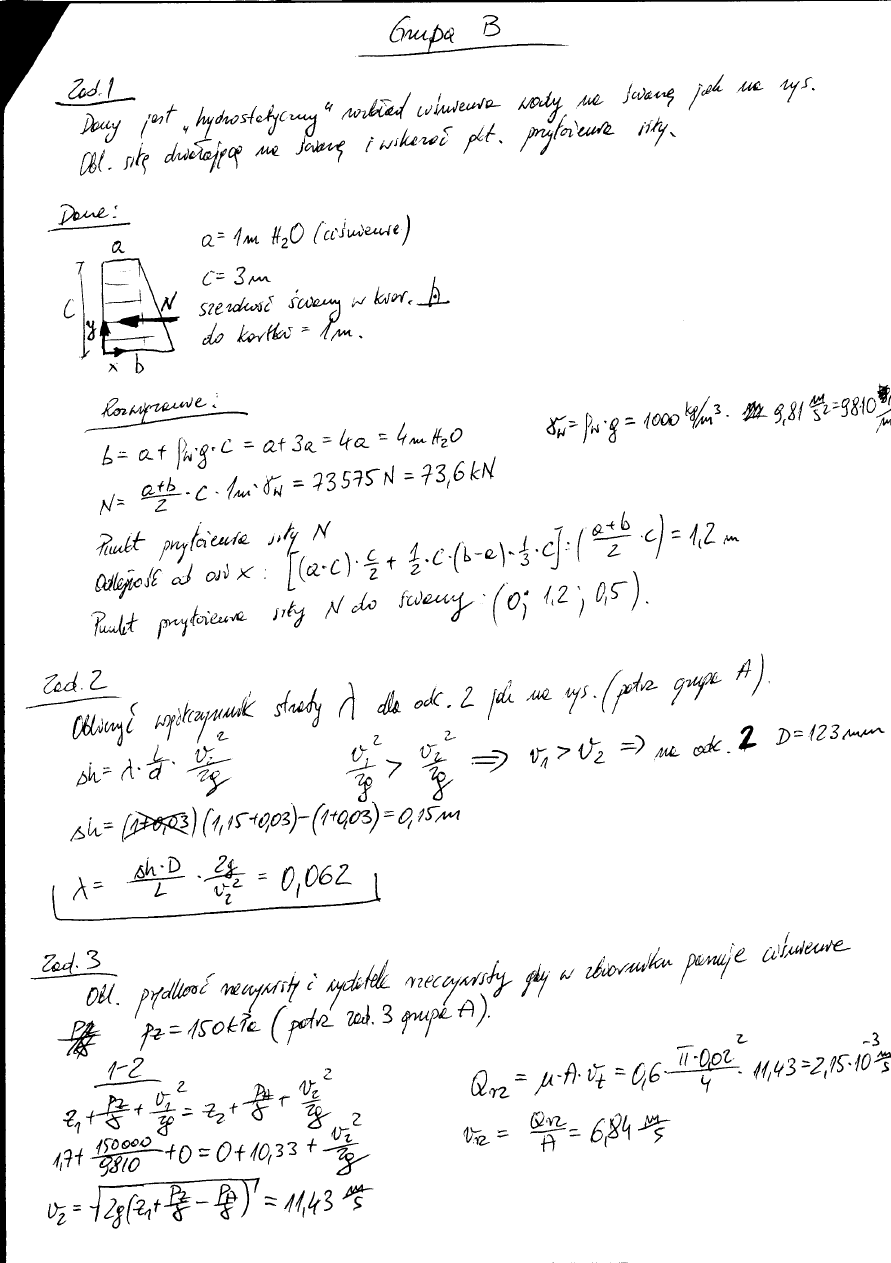 Grupa B
Zad. 1
Dany jest „hydrostatyczny" rozkład ciśnienia wody na ścianę jak na rys.
Obl. siłę działającą na ścianę i wskazać pkt. przyłożenia siły.
Dane:
a = 1m H₂O (ciśnienie)
c = 3m
szerokość ściany w kier. ⊥
do kartki = 1m.
a
C
N
y
x b
Rozwiązanie:
γw = ρw·g = 1000 kg/m³ · 9,81 m/s² = 9810
b = a + ρw·g·c = a + 3a = 4a = 4m H₂O
N = (a+b)/2 · c · 1m · γw = 73575 N = 73,6 kN
Punkt przyłożenia siły N
Odległość od osi x: [(a·c)·c/2 + 1/2·c·(b-a)·1/3·c] : ((a+b)/2 ·c) = 1,2 m
Punkt przyłożenia siły N do ściany: (0; 1,2; 0,5).
Zad. 2
Obliczyć współczynnik straty λ dla odc. 2 jak na rys. (patrz grupa A).
Δh = λ · L/d · v₂²/2g v₁²/2g > v₂²/2g ⟹ v₁ > v₂ ⟹ na odc. 2 D = 123 mm
Δh = (1+0,03) (1,15+0,03) - (1+0,03) = 0,15m
λ = Δh·D/L · 2g/v₂² = 0,062
Zad. 3
Obl. prędkość rzeczywistą i wydatek rzeczywisty gdy w zbiorniku panuje ciśnienie
pz = 150 kPa (patrz zad. 3 grupa A).
1-2
z₁ + pz/γ + v₁²/2g = z₂ + pa/γ + v₂²/2g
1,7 + 150000/9810 + 0 = 0 + 10,33 + v₂²/2g
v₂ = √(2g(z₁ + pz/γ - pA/γ)) = 11,43 m/s
Qrz = μ·A·vt = 0,6 · π·0,02²/4 · 11,43 = 2,15·10⁻³ m/s
vrz = Qrz/A = 6,84 m/s